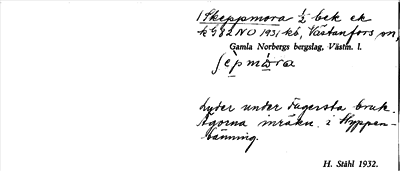 1 Skeppmora ½ bek ek
k G 82 NO 1931 kb, Västanfors sn,
Gamla Norbergs bergslag, Västm. l.
ʃèpmòra
Lyder under Fagersta bruk.
Ägorna inräkn. i Hyppen-
bänning.
H. Ståhl 1932.